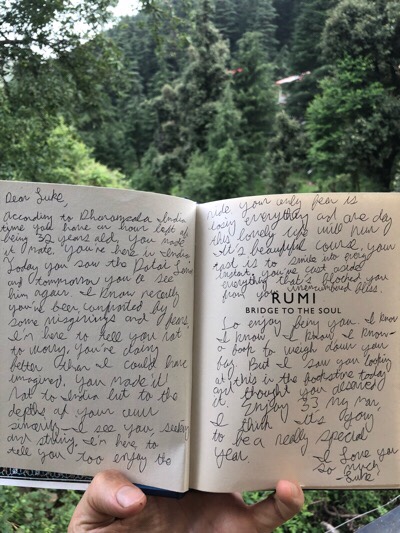 Dear Luke,
according to Dharamsala India
time you have an hour left of
being 32 years old. You made
it mate. You're here in India.
Today you saw the Dalai Lama
and tomorrow you'll see
him again. I know recently
you've been confronted by
some misgivings and fears.
I'm here to tell you not
to worry. You're doing
better than I could have
imagined. You made it!
Not to India but to the
depths of your own
sincerity. I see you seeking
and striving. I'm here to
tell you too enjoy the
ride. Your only fear is
losing everything and one day
this lovely life will run
it's beautiful course, your
task is to smile into every
instant, you've cast aside
everything that's blocked you
from your unencumbered bliss.
RUMI
BRIDGE TO THE SOUL
So enjoy being you. I know
I know I know I know -
a book to weigh down your
bag. But I saw you looking
at this in the bookstore today
and thought you deserved
it. Enjoy 33 my man,
I think it's going
to be a really special
year
I love you
so much
- Luke